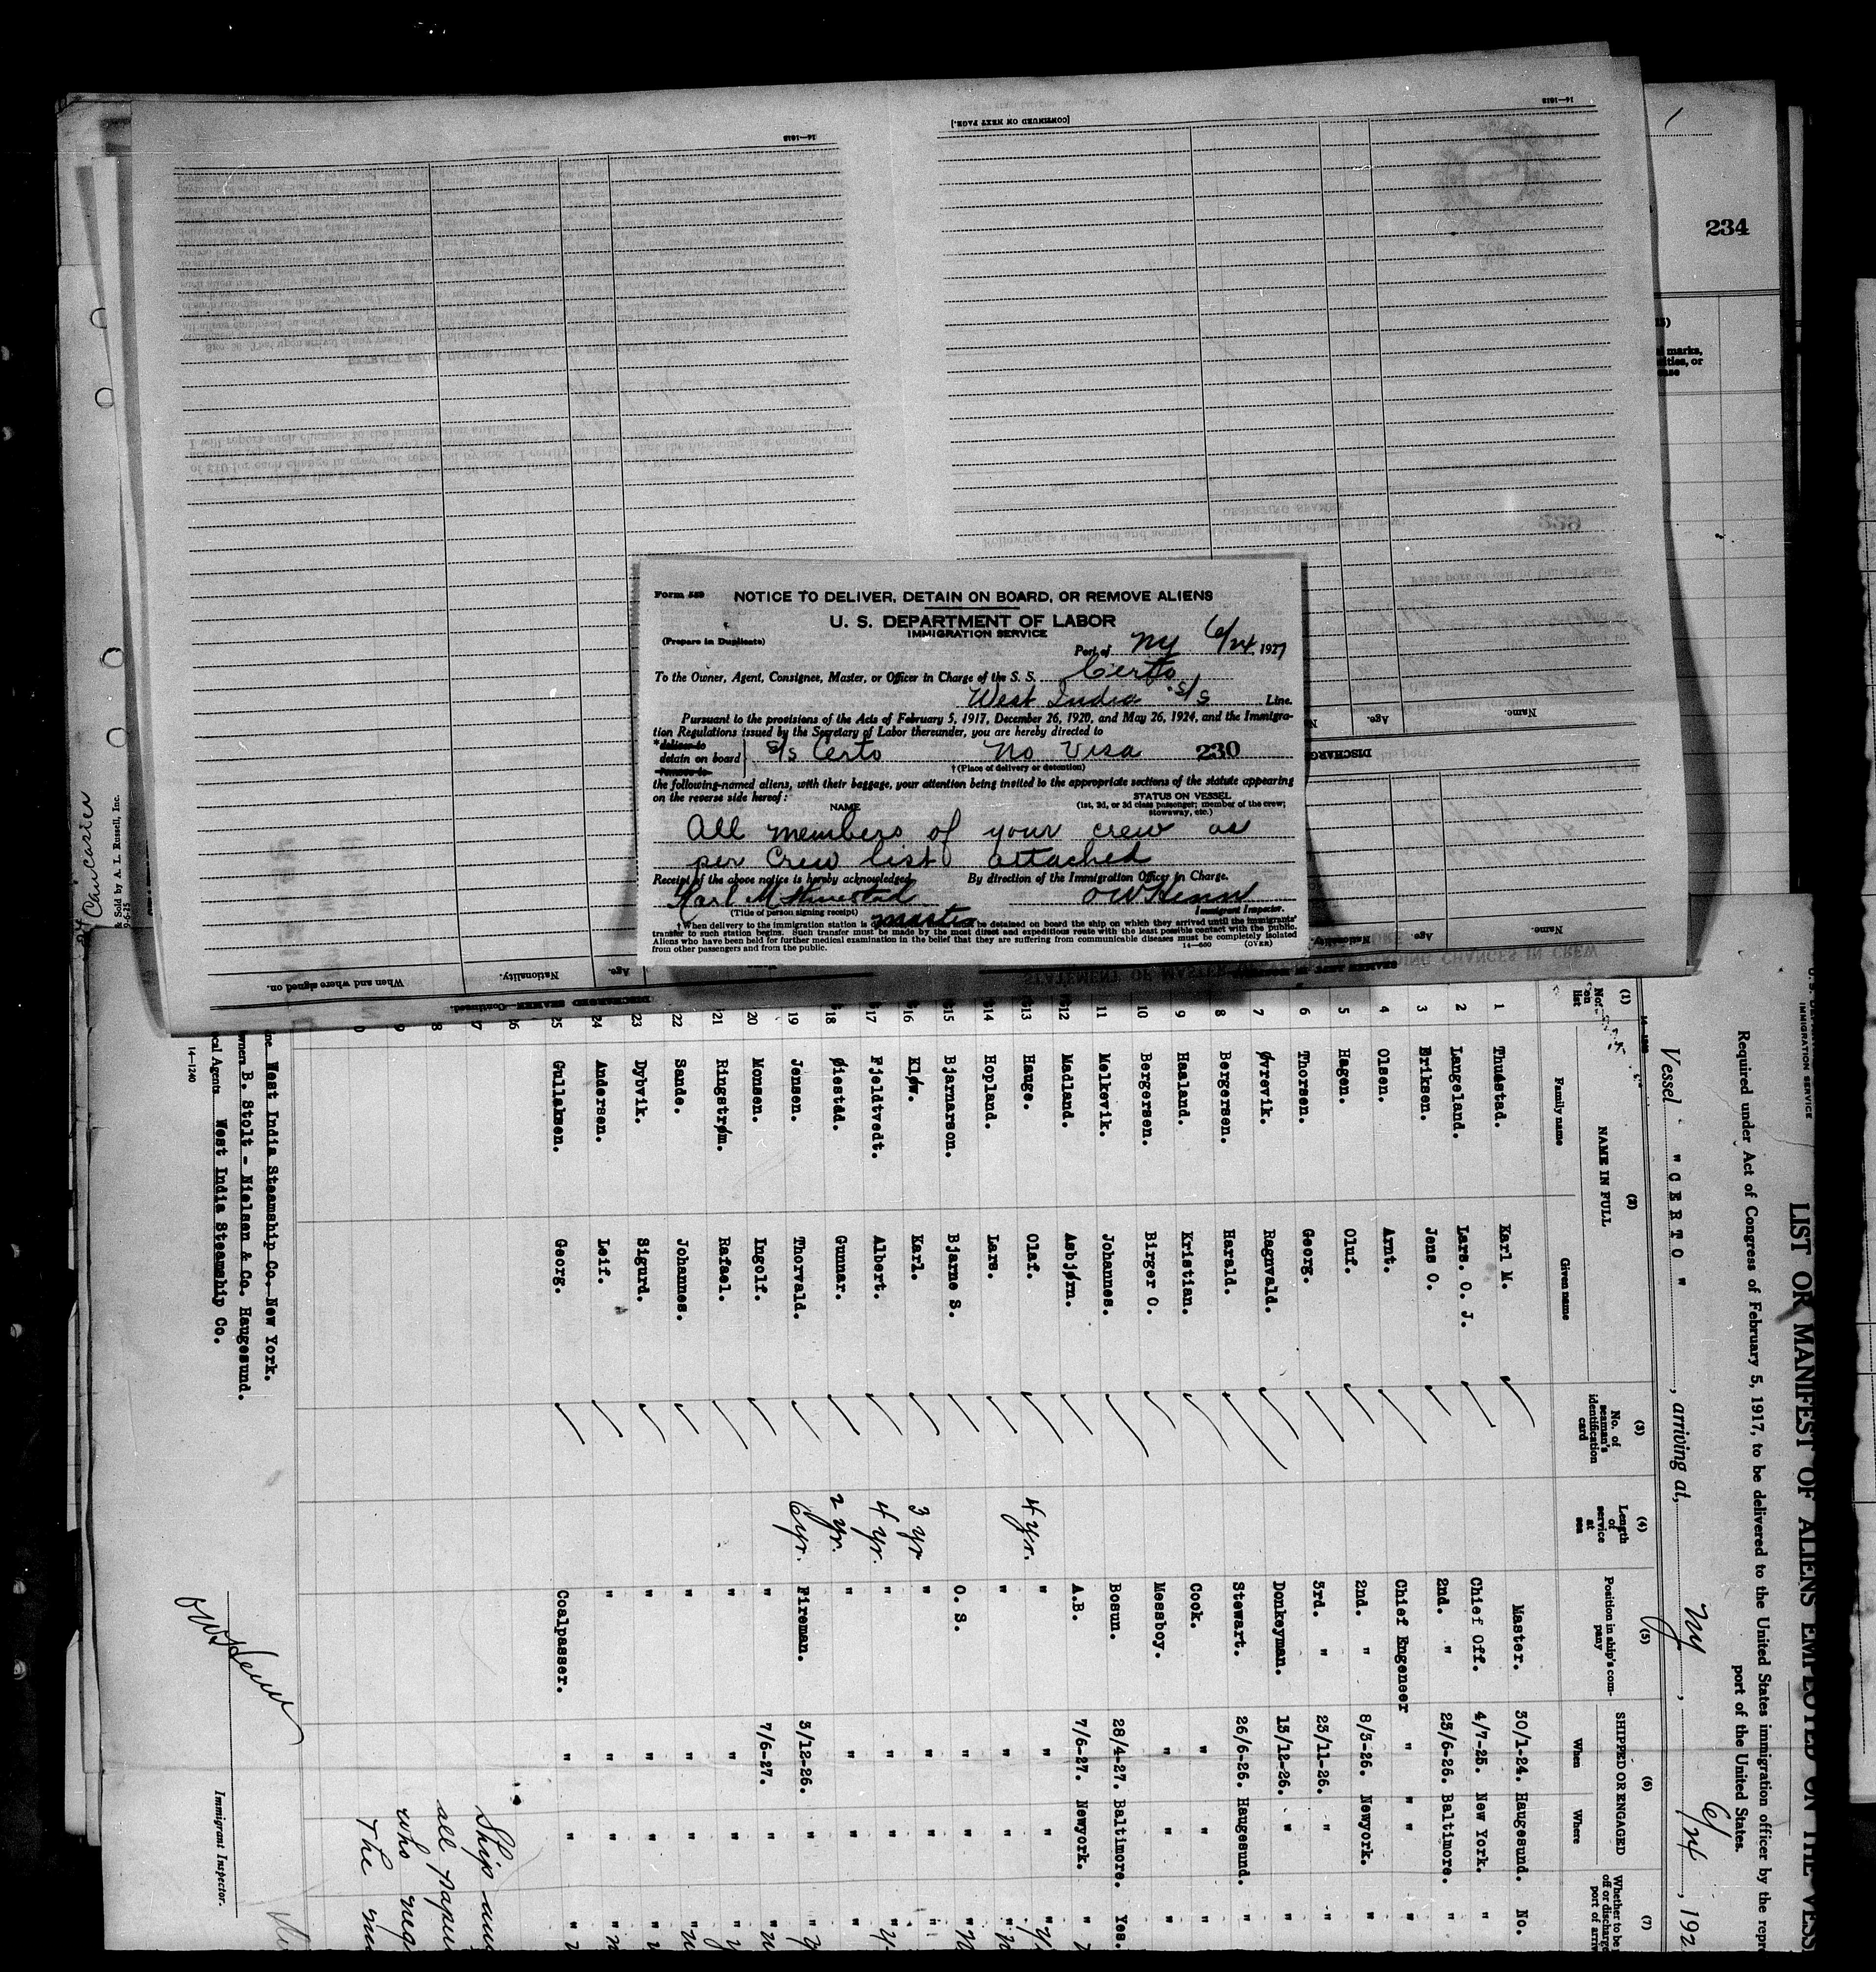 234
Form 589
NOTICE TO DELIVER, DETAIN ON BOARD, OR REMOVE ALIENS
U. S. DEPARTMENT OF LABOR
IMMIGRATION SERVICE
(Prepare in Duplicate)
Port of NY 6/24, 1927
To the Owner, Agent, Consignee, Master, or Officer in Charge of the S. S. Certo
West India S/S Line.
Pursuant to the provisions of the Acts of February 5, 1917, December 26, 1920, and May 26, 1924, and the Immigra-
tion Regulations issued by the Secretary of Labor thereunder, you are hereby directed to
*deliver to
detain on board S/S Certo No Visa 230
remove to
†(Place of delivery or detention)
the following-named aliens, with their baggage, your attention being invited to the appropriate sections of the statute appearing
on the reverse side hereof:
NAME
STATUS ON VESSEL
(1st, 2d, or 3d class passenger; member of the crew;
stowaway, etc.)
All members of your crew as
per Crew list attached
Receipt of the above notice is hereby acknowledged
By direction of the Immigration Officer in Charge.
Karl M
(Title of person signing receipt) Master
Immigrant Inspector.
†When delivery to the immigration station is be detained on board the ship on which they arrived until the immigrants'
transfer to such station begins. Such transfer must be made by the most direct and expeditious route with the least possible contact with the public.
Aliens who have been held for further medical examination in the belief that they are suffering from communicable diseases must be completely isolated
from other passengers and from the public.
14—660 (OVER)
[CONTINUED ON NEXT PAGE.]
14—1618
14—1618
DISCHARGED SEAMEN—Continued.
Name. Age. Nationality. When and where signed on.
STATEMENT OF MASTER REGARDING CHANGES IN CREW
IMMIGRATION SERVICE
LIST OR MANIFEST OF ALIENS EMPLOYED ON THE VESS
Required under Act of Congress of February 5, 1917, to be delivered to the United States immigration officer by the repre
port of the United States.
Vessel " C E R T O ", arriving at NY, 6/24, 192
(1) (2) (3) (4) (5) (6) (7)
No. on list
NAME IN FULL
Family name Given name
No. of seaman's identification card
Length of service at sea
Position in ship's company
SHIPPED OR ENGAGED
When Where
1 Thuestad. Karl M. Master. 30/1-24. Haugesund. No.
2 Langeland. Lars. O. J. Chief Off. 4/7-25. New York. "
3 Eriksen. Jens O. 2nd. " 23/6-26. Baltimore. "
4 Olsen. Arnt. Chief Engeneer " " "
5 Hagen. Oluf. 2nd. " 8/3-26. Newyork. "
6 Thorsen. Georg. 3rd. " 23/11-26. " "
7 Øvrevik. Ragnvald. Donkeyman. 13/12-26. " "
8 Bergersen. Harald. Stewart. 26/6-26. Haugesund. "
9 Haaland. Kristian. Cook. " " "
10 Bergersen. Birger O. Messboy. " " "
11 Melkevik. Johannes. Bosun. 28/4-27. Baltimore. Yes.
12 Madland. Asbjørn. A.B. 7/6-27. Newyork. "
13 Hauge. Olaf. 4 yr. " " " "
14 Hopland. Lars. " " " "
15 Bjarnarson. Bjarne S. O. S. " " "
16 Kløw. Karl. 3 yr " " " "
17 Fjeldtvedt. Albert. 4 yr. " " " "
18 Øiestad. Gunnar. 2 yr. " " " "
19 Jensen. Thorvald. 6 yr. Fireman. 3/12-26. " "
20 Monsen. Ingolf. " 7/6-27. " "
21 Ringstrøm. Rafael. " " " "
22 Sande. Johannes. " " " "
23 Dybvik. Sigurd. " " " "
24 Andersen. Leif. " " " "
25 Gullaksen. Georg. Coalpasser. " " "
Ship
all
who
The
West India Steamship Co. New York.
B. Stolt - Nielsen & Co. Haugesund.
West India Steamship Co.
14—1240
Immigrant Inspector.
& Sold by A. L. Russell, Inc.